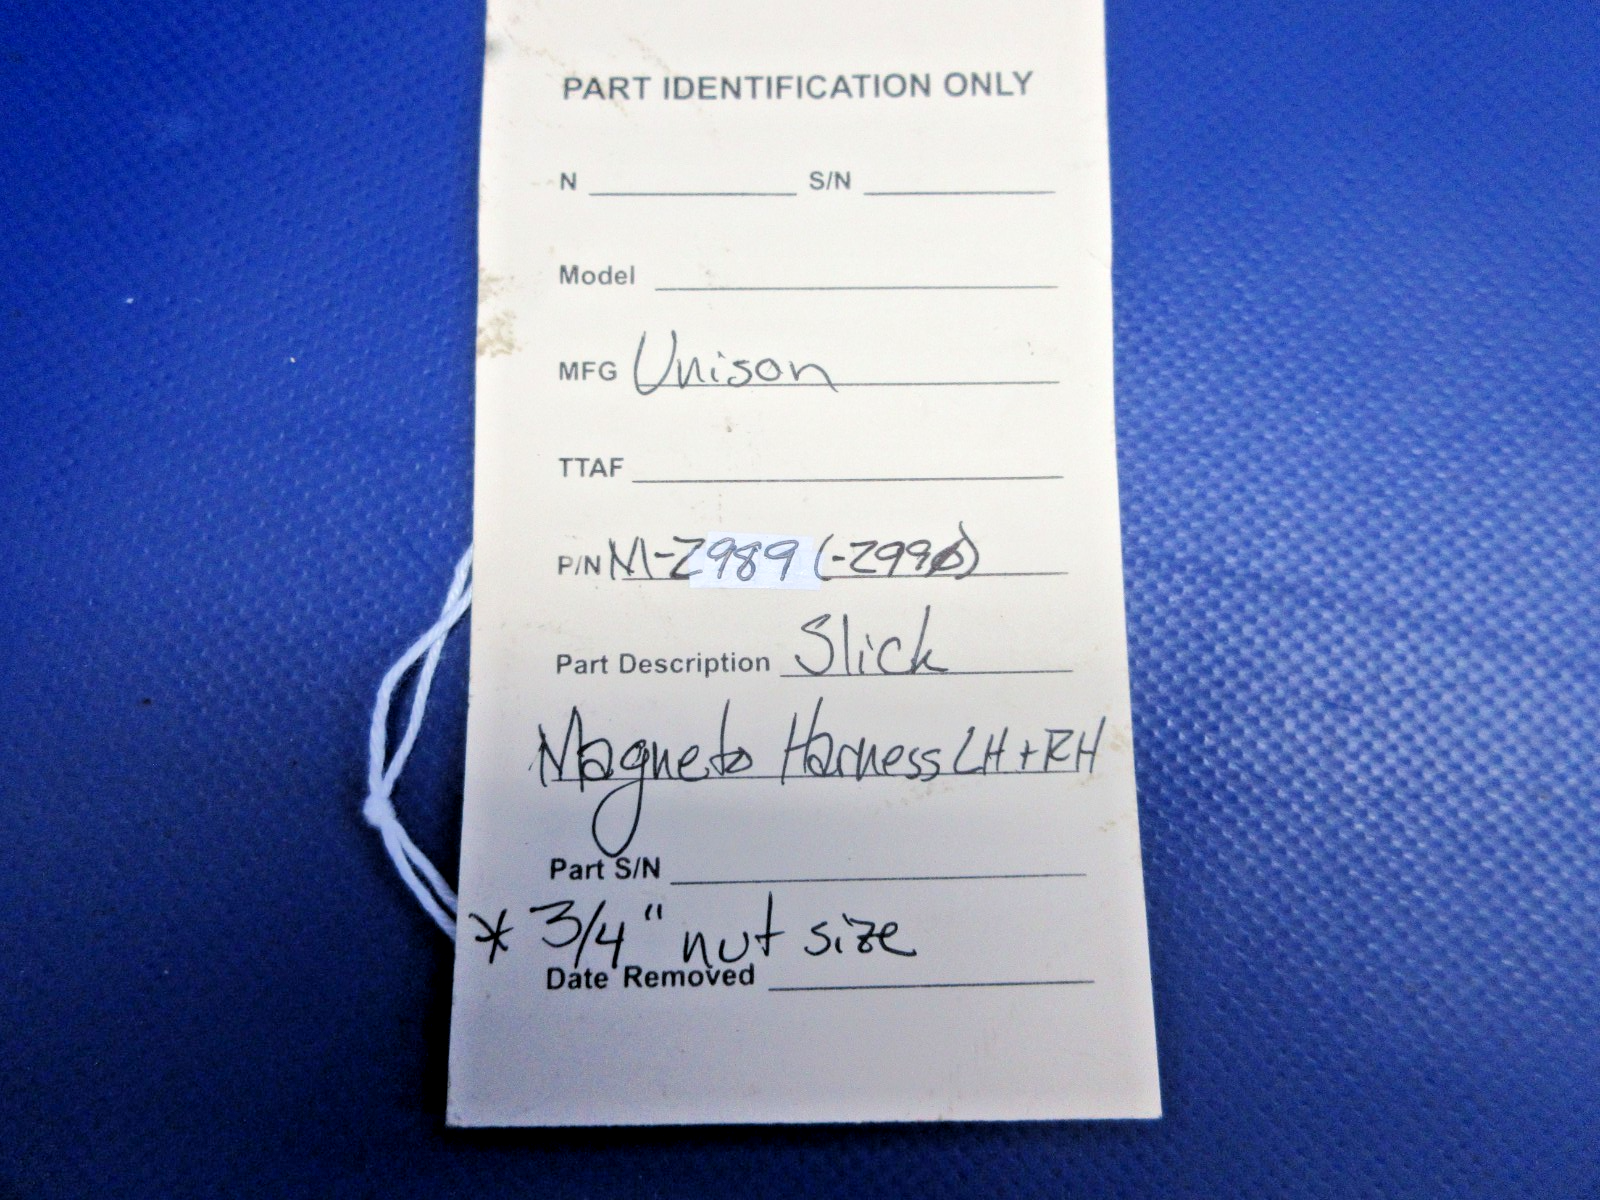 PART IDENTIFICATION ONLY
N S/N
Model
MFG Unison
TTAF
P/N M-2989 (-2990)
Part Description Slick
Magneto Harness LH + RH
Part S/N
* 3/4" nut size
Date Removed